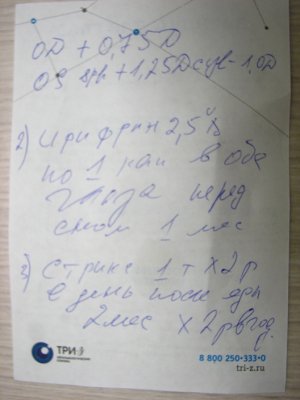 OD + 0,75D
OS sph +1,25D cyl - 1,0D
2) Ирифрин 2,5%
по 1 кап в оба
глаза перед
сном 1 мес
3) Стрикс 1 т х 2 р
в день после еды
2 мес х 2 р в год.
ТРИ-З
ОФТАЛЬМОЛОГИЧЕСКАЯ
КЛИНИКА
8 800 250-333-0
tri-z.ru